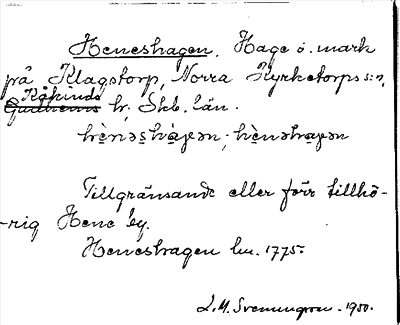 Heneshagen, Hage o. mark
på Klagstorp, Norra Kyrketorps s:n,
Kåkinds
Gudhems hr, Skb. län.
hènəs̱hàgən; hènəhagən
Tillgränsande eller förr tillhö-
-rig Hene by.
Heneshagen lm. 1775.
L.M. Svenungsson. 1950.